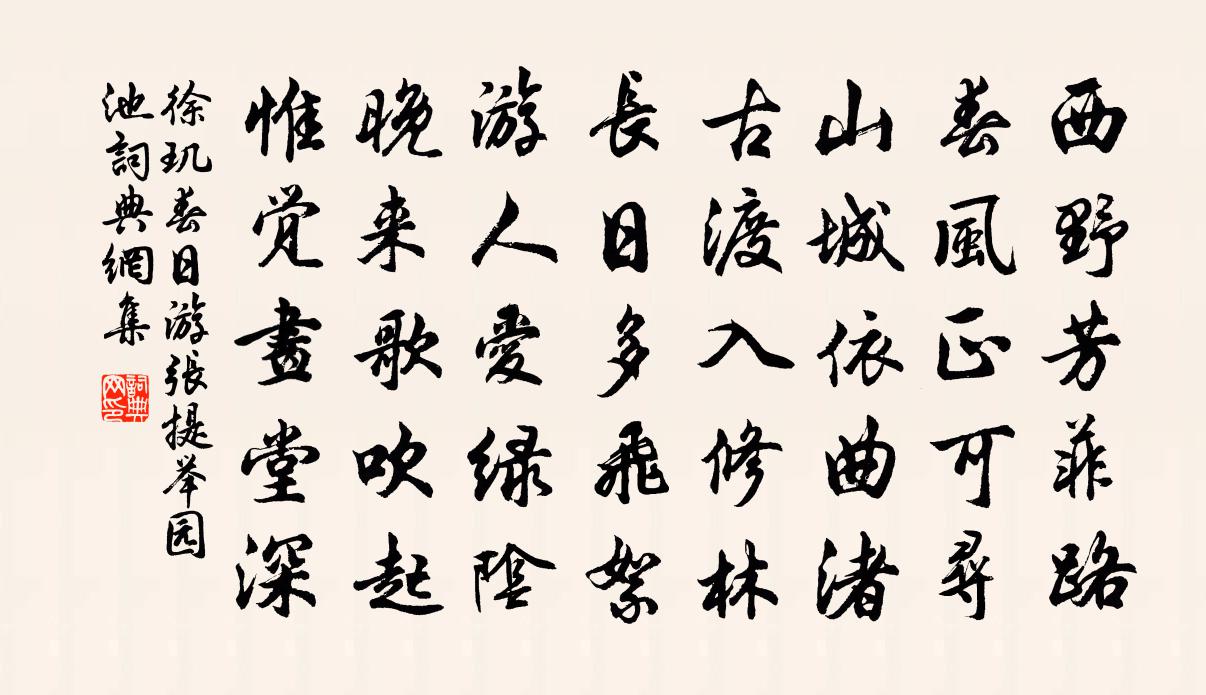 西野芳菲路
春風正可尋
山城依曲渚
古渡入修林
長日多飛絮
游人愛绿陰
晚来歌吹起
惟觉畫堂深
徐玑春日游張提举园
池詞典網集
詞典
网印